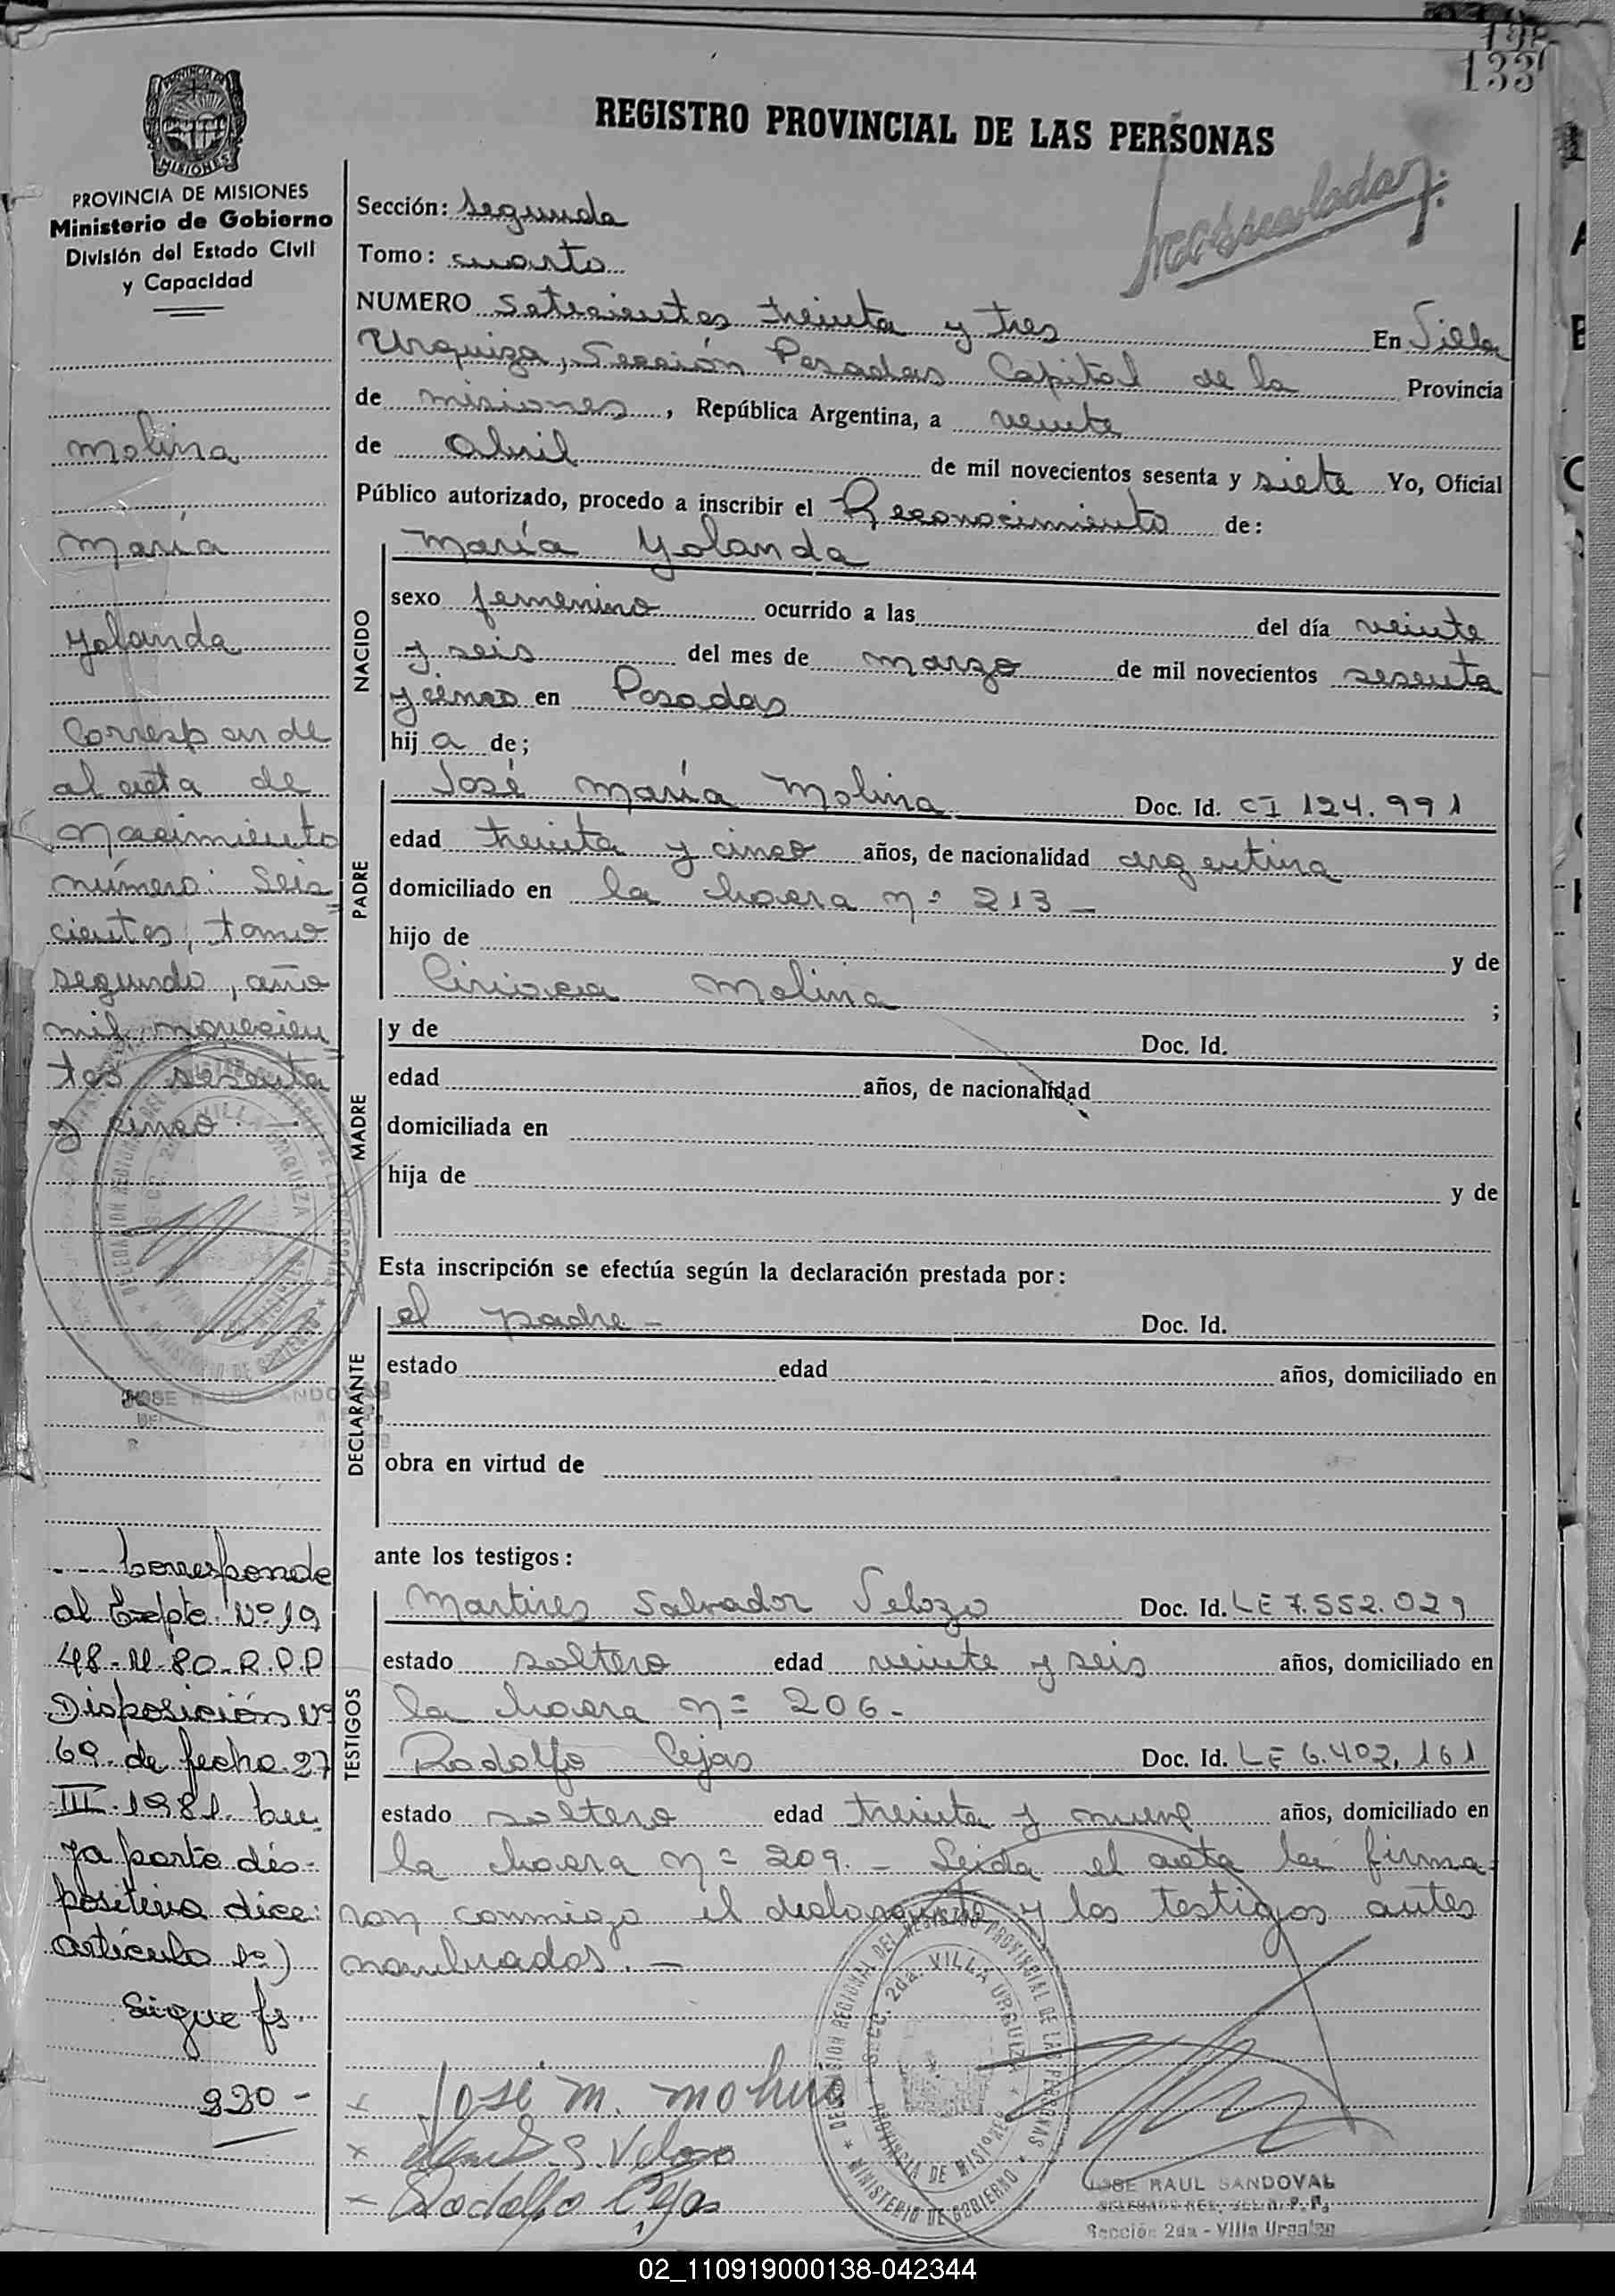 133
PROVINCIA DE
MISIONES
REGISTRO PROVINCIAL DE LAS PERSONAS
PROVINCIA DE MISIONES
Ministerio de Gobierno
División del Estado Civil
y Capacidad
Molina
María
Yolanda
Corresponde
al acta de
Nacimiento
número: Seis
cientos, tomo
segundo, año
mil novecien
tos sesenta
y cinco.
Corresponde
al Expte. Nº 19
48-M-80-R.P.P
Disposición Nº
69 de fecha 27
III-1981. cu
ya parte dis-
positiva dice:
artículo 1º)
Sigue fs.
230-
Sección: Segunda
Tomo: cuarto
NUMERO Setecientos treinta y tres En Villa
Urquiza, Sección Posadas Capital de la Provincia
de misiones, República Argentina, a veinte
de Abril de mil novecientos sesenta y siete Yo, Oficial
Público autorizado, procedo a inscribir el Reconocimiento de:
NACIDO
María Yolanda
sexo femenino ocurrido a las del día veinte
y seis del mes de marzo de mil novecientos sesenta
y cinco en Posadas
hij a de;
PADRE
José María Molina Doc. Id. CI 124.991
edad treinta y cinco años, de nacionalidad argentina
domiciliado en la chacra nº 213 -
hijo de y de
Ciriaca Molina ;
MADRE
y de Doc. Id.
edad años, de nacionalidad
domiciliada en
hija de y de
Esta inscripción se efectúa según la declaración prestada por:
DECLARANTE
el padre - Doc. Id.
estado edad años, domiciliado en
obra en virtud de
ante los testigos:
TESTIGOS
Martires Salvador Velozo Doc. Id. LE 7.552.029
estado soltero edad veinte y seis años, domiciliado en
la chacra nº 206 -
Rodolfo Cejas Doc. Id. LE 6.402.161
estado soltero edad treinta y nueve años, domiciliado en
la chacra nº 209. - Leida el acta la firma-
ron conmigo el declarante y los testigos antes
nombrados. -
José M. Molina
S. Velozo
Rodolfo Cejas
DELEGACION REGIONAL DEL REGISTRO PROVINCIAL DE LAS PERSONAS
SECC. 2da. VILLA URQUIZA
PROVINCIA DE MISIONES
MINISTERIO DE GOBIERNO
JOSE RAUL SANDOVAL
Sección 2da - Villa Urquiza
02_110919000138-042344